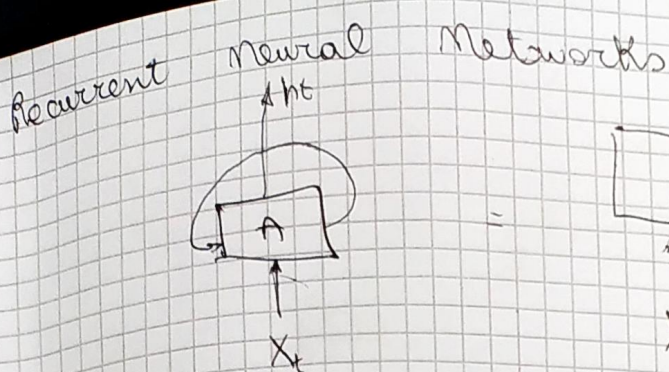 Recurrent Neural Networks
ht
A
=
Xt